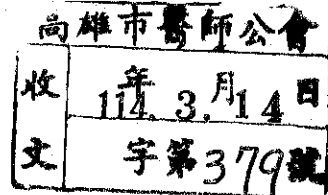 高雄市醫師公會
收文
114年3月14日
字第379號